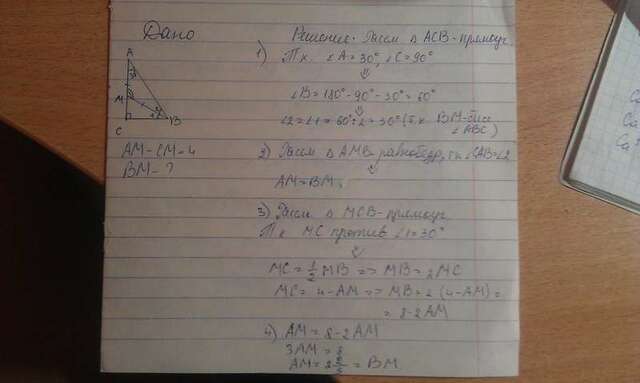 Дано
A
30°
M
2
1
C
B
AM-CM=4
BM-?
Решение: Рассм Δ ACB-прямоуг.
1) Т.к. ∠A=30°, ∠C=90°
⇓
∠B=180°-90°-30°=60°
⇓
∠2=∠1=60°:2=30° (т.к. BM-бисс ∠ABC)
2) Рассм Δ AMB-равнобедр, т.к ∠CAB=∠2
⇓
AM=BM.
3) Рассм Δ MCB-прямоуг.
Т.к MC против ∠1=30°
⇓
MC=1/2 MB => MB=2MC
MC= 4-AM => MB=2(4-AM)=
= 8-2AM
4) AM=8-2AM
3AM=8
AM=2 2/3=BM
Ca
Ca